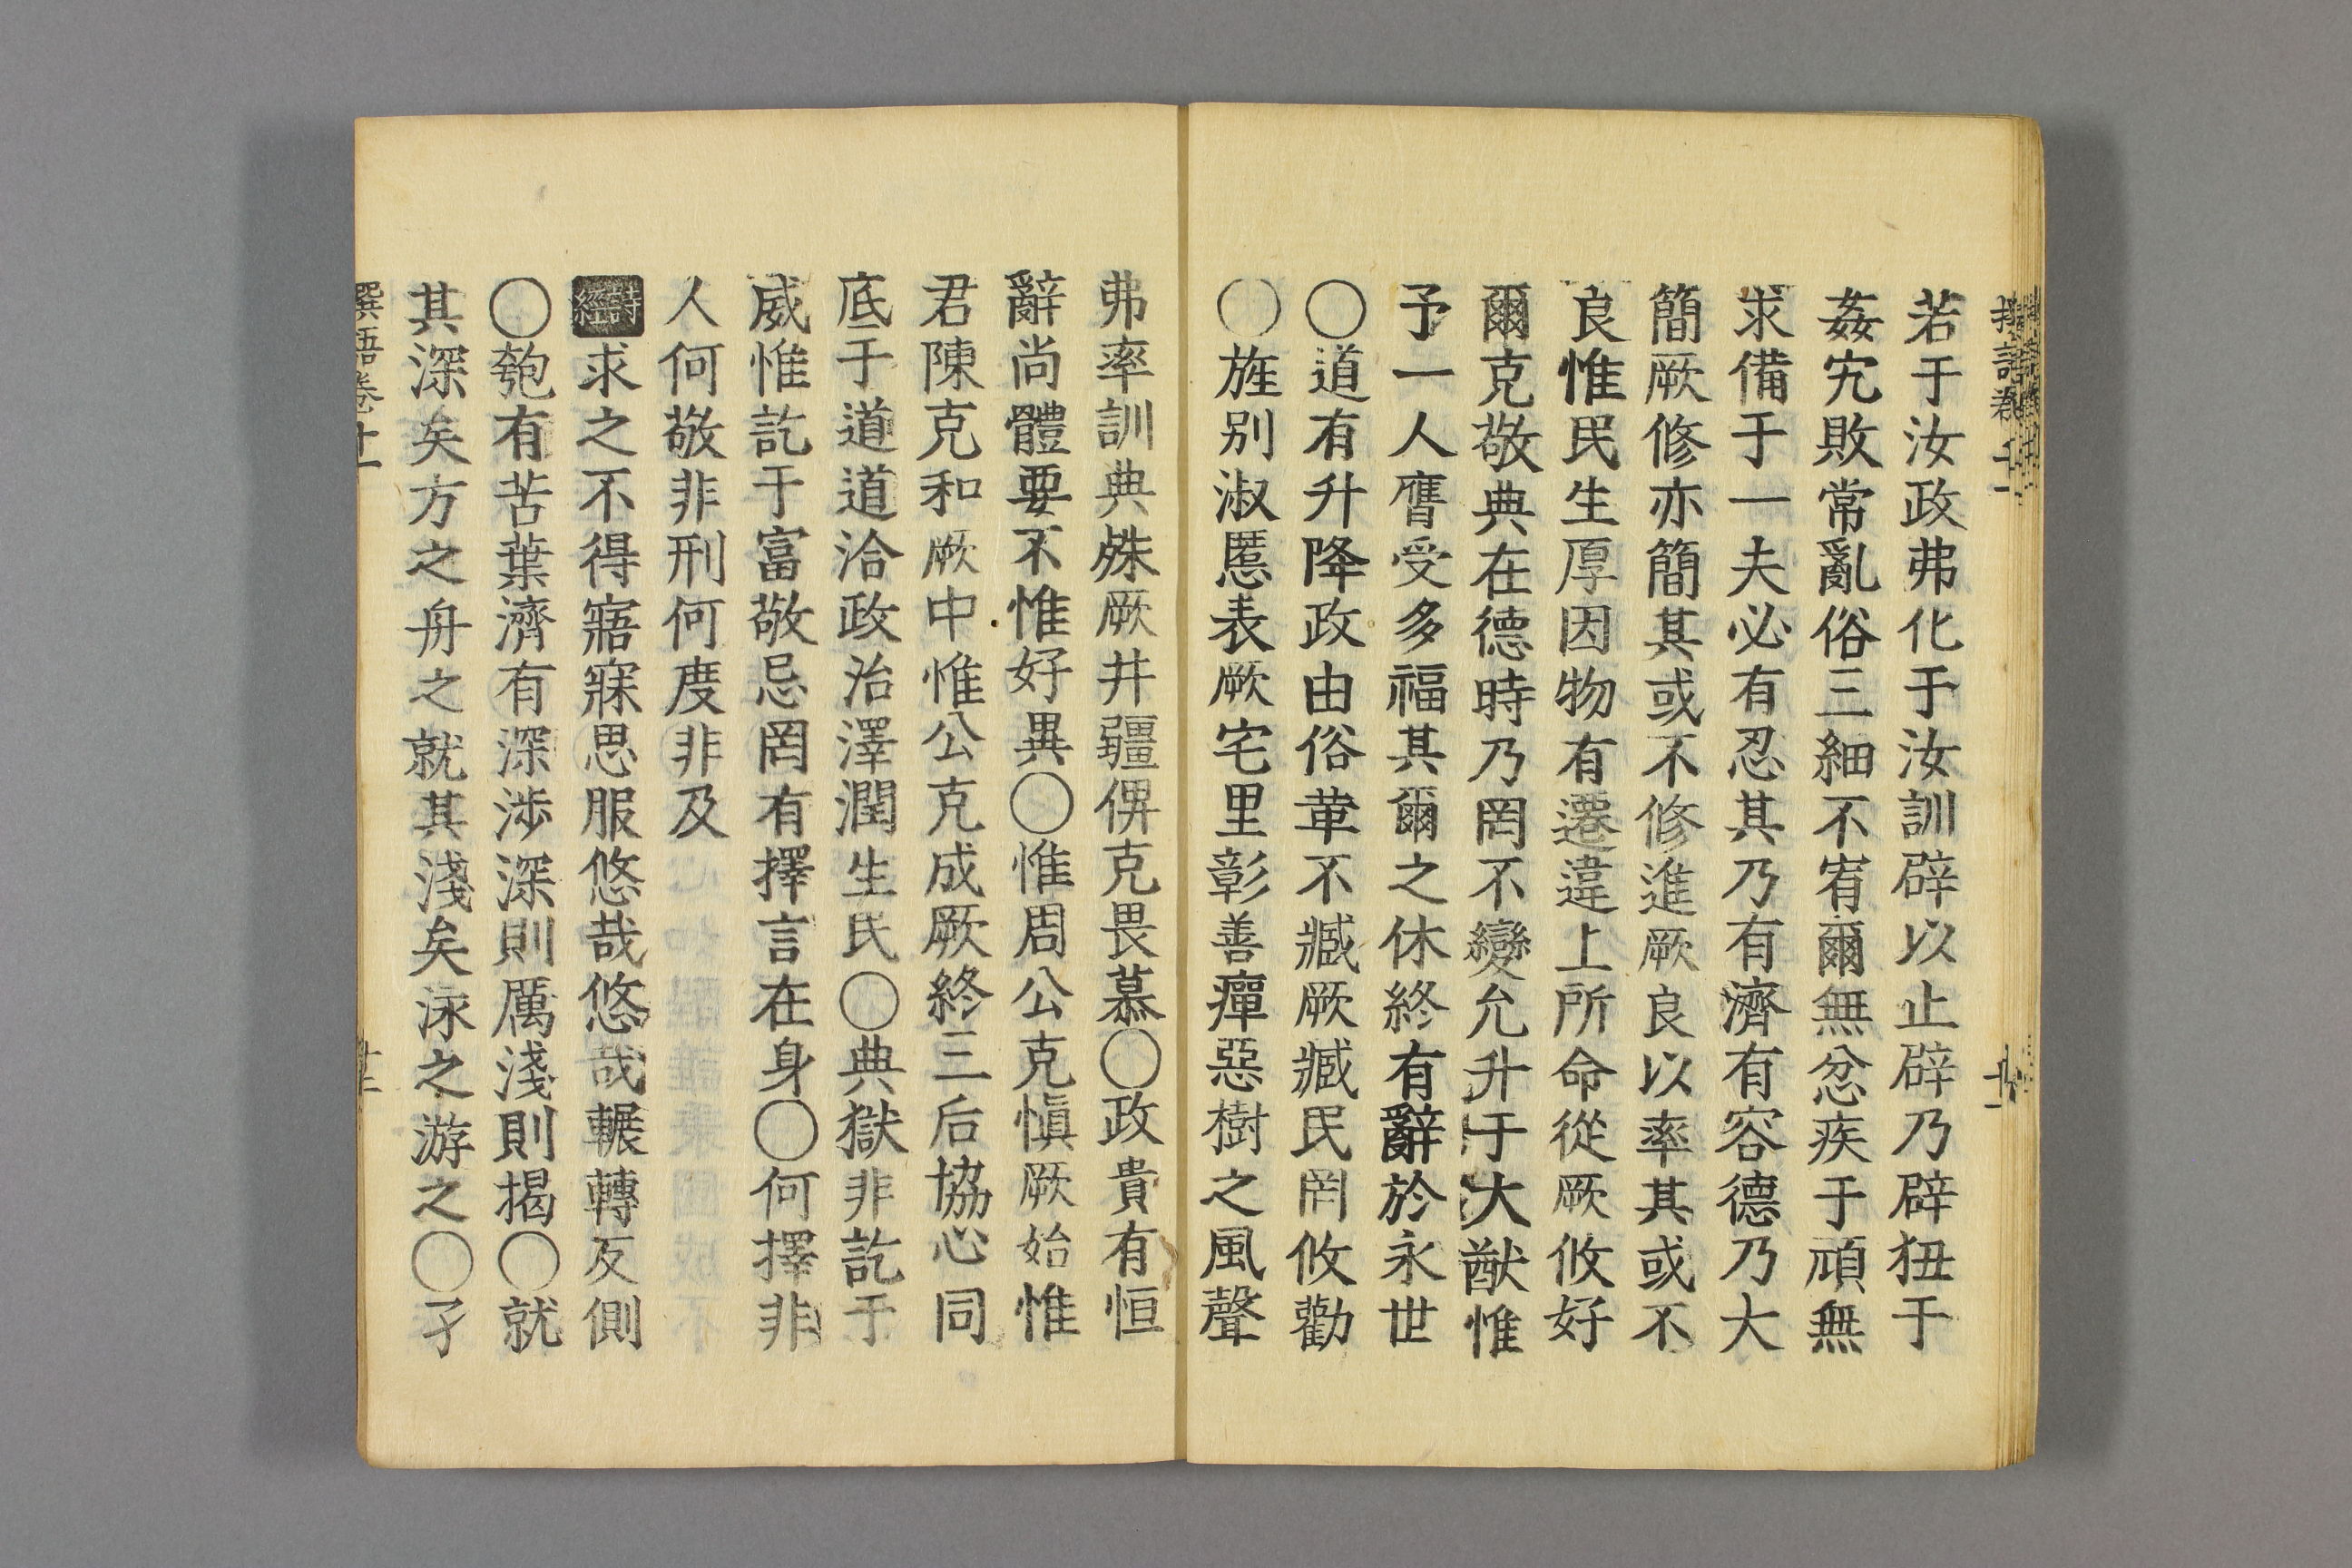 若于汝政弗化于汝訓辟以止辟乃辟狃于
姦宄敗常亂俗三細不宥爾無忿疾于頑無
求備于一夫必有忍其乃有濟有容德乃大
簡厥修亦簡其或不修進厥良以率其或不
良惟民生厚因物有遷違上所命從厥攸好
爾克敬典在德時乃罔不變允升于大猷惟
予一人膺受多福其爾之休終有辭於永世
〇道有升降政由俗革不臧厥臧民罔攸勸
〇旌别淑慝表厥宅里彰善癉惡樹之風聲
弗率訓典殊厥井疆俾克畏慕〇政貴有恒
辭尚體要不惟好異〇惟周公克愼厥始惟
君陳克和厥中惟公克成厥終三后協心同
底于道道洽政治澤潤生民〇典獄非訖于
威惟訖于富敬忌罔有擇言在身〇何擇非
人何敬非刑何度非及
詩經求之不得寤寐思服悠哉悠哉輾轉反側
〇匏有苦葉濟有深涉深則厲淺則揭〇就
其深矣方之舟之就其淺矣泳之游之〇孑
撰語卷十一